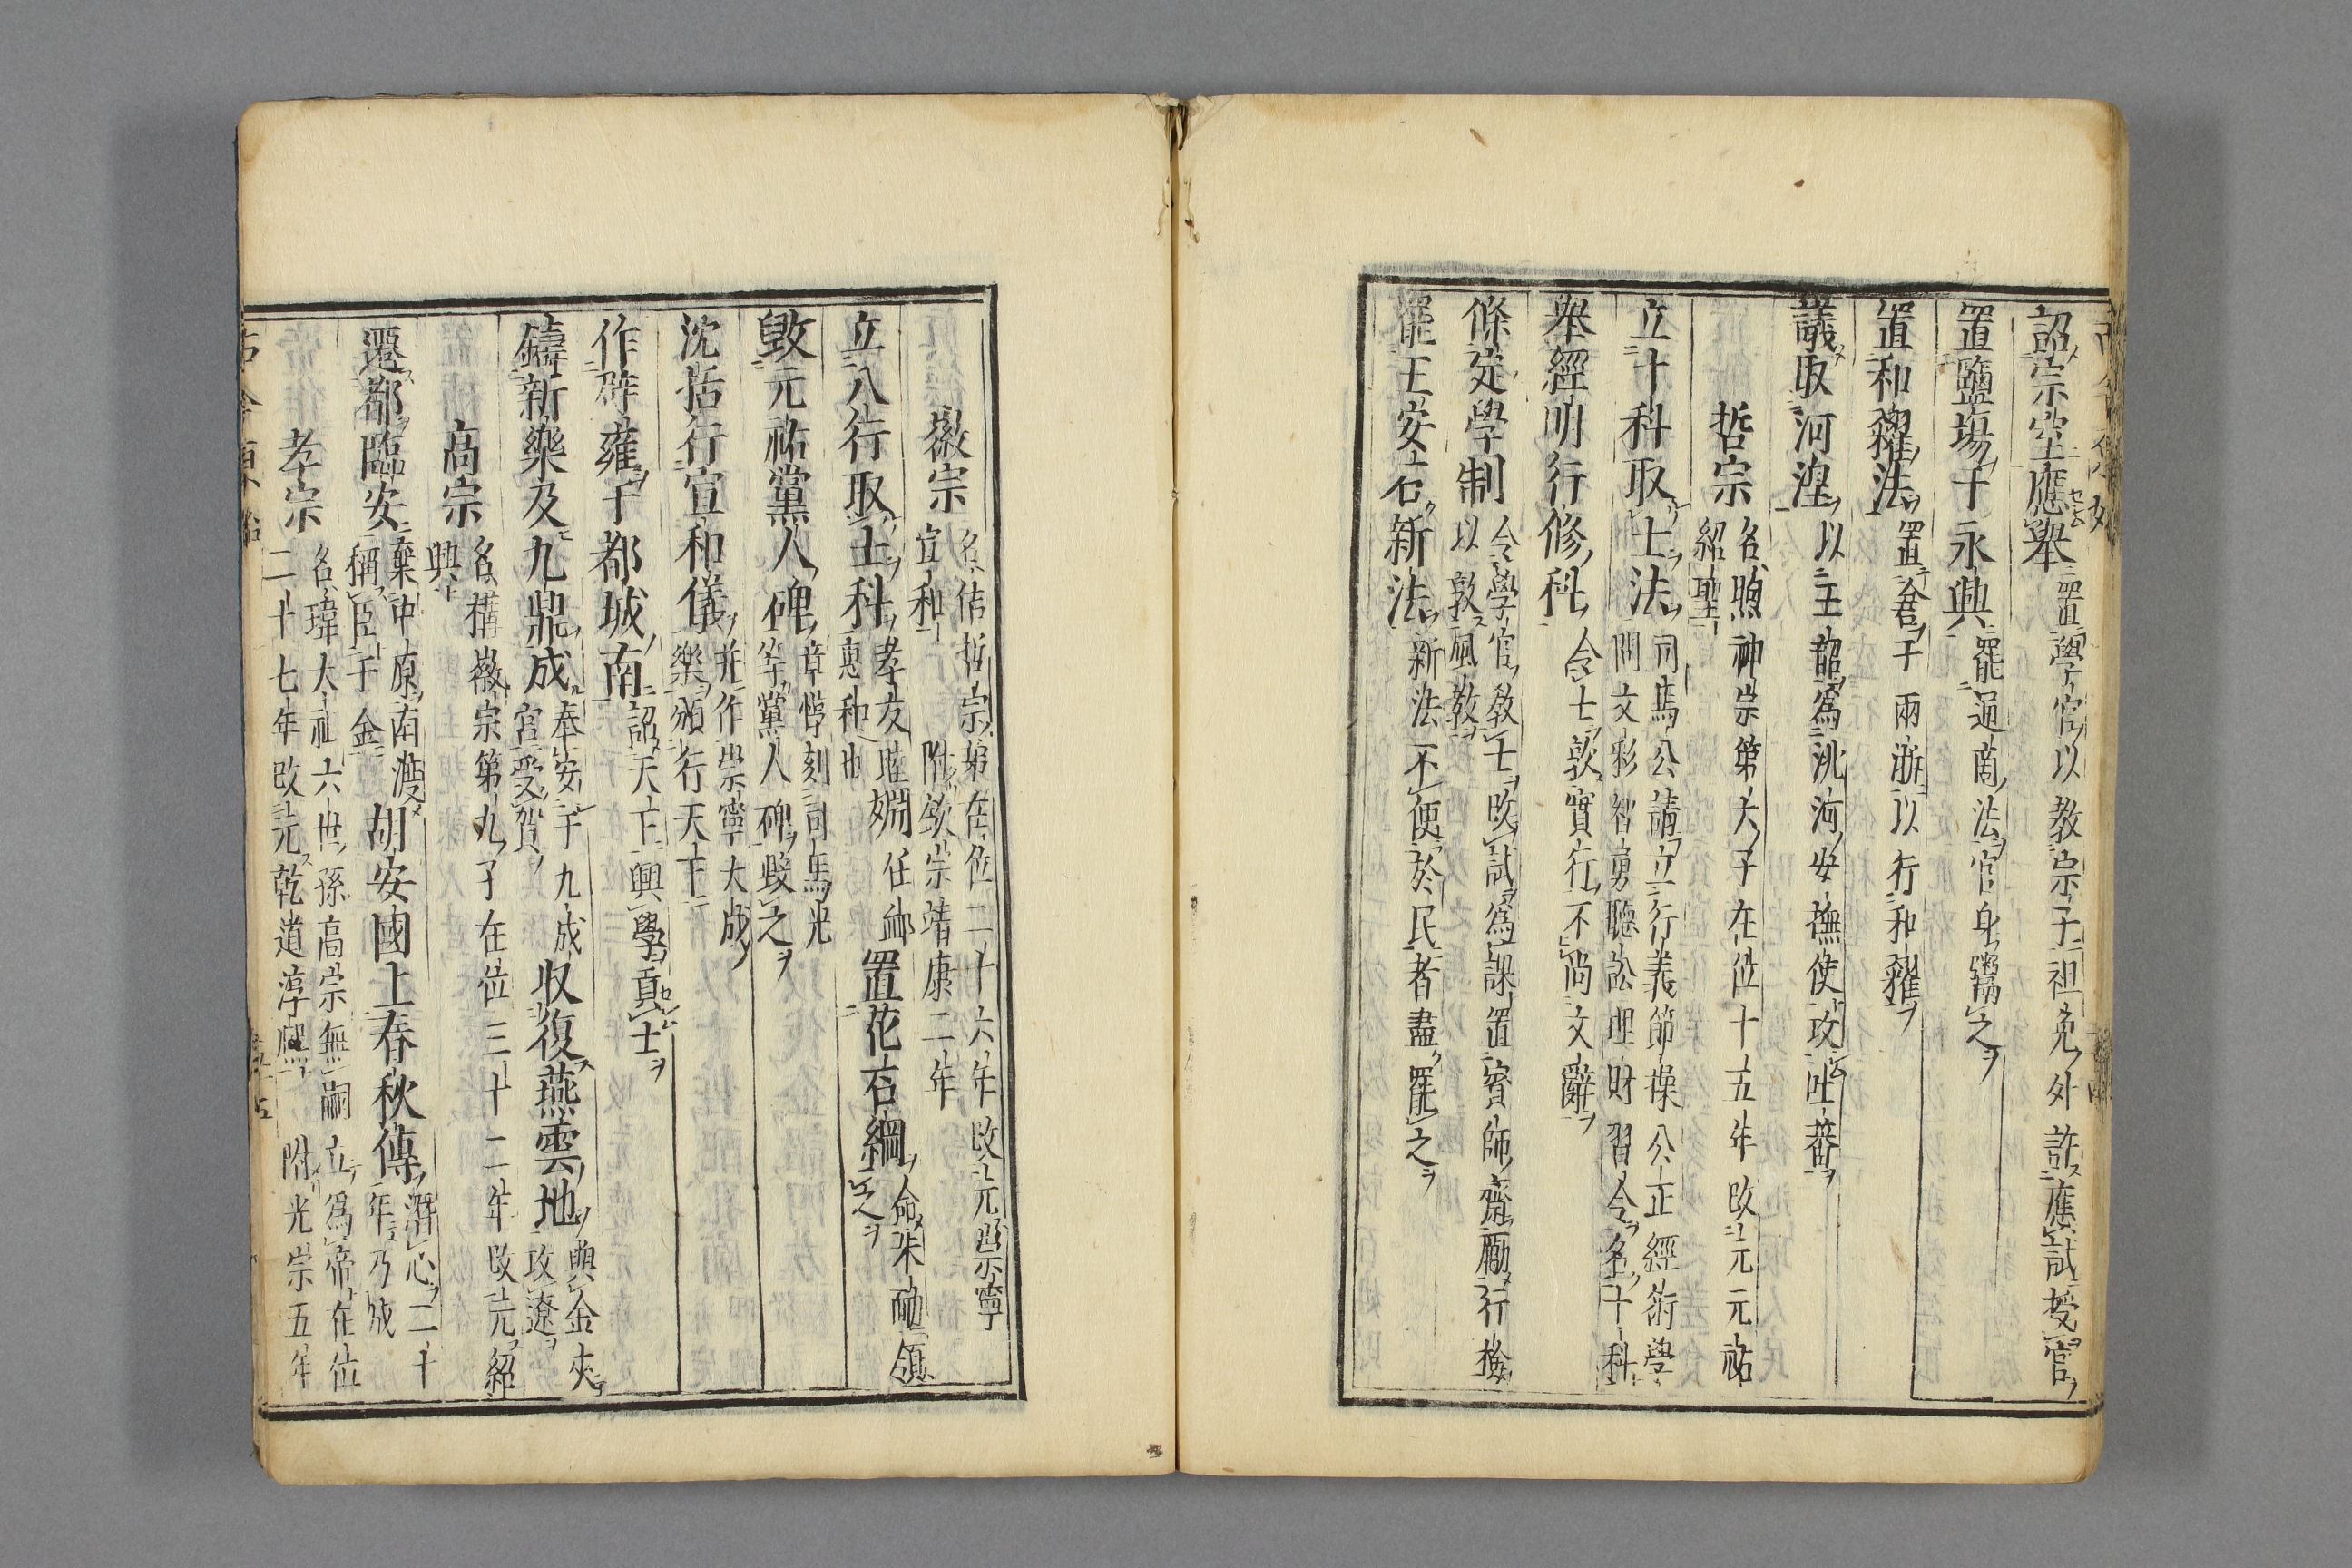 詔宗室應舉 置學官以教宗子袒免外許應試授官
置鹽場于永興 罷通商法官自鬻之
置和糴法 置倉于兩浙以行和糴
議取河湟 以王韶爲洮河安撫使攻吐蕃
哲宗 名煦神宗第六子在位十五年改元元祐
紹聖
立十科取士法 司馬公請立行義節操公正經術學
問文彩智勇聽訟理財習令名十科
舉經明行修科 令士敦實行不尚文辭
條定學制 令學官教士改試爲課置賓師齋勵行檢
以敦風教
罷王安石新法 新法不便於民者盡罷之
徽宗 名佶哲宗第在位二十六年改元崇寧
宣和 附欽宗靖康二年
立八行取士科 孝友睦婣任䘏
忠和也
置花石綱 命朱勔領
之
毀元祐黨人碑 章惇刻司馬光
等黨人碑毀之
沈括行宣和儀 并作崇寧大成
樂頒行天下
作辟雍于都城南 詔天下興學貢士
鑄新樂及九鼎成 奉安于九成
宮受賀
收復燕雲地 與金夾
攻遼
高宗 名構徽宗第九子在位三十二年改元紹
興
遷都臨安 棄中原南渡
稱臣于金
胡安國上春秋傳 潛心二十
年乃成
孝宗 名瑋太祖六世孫高宗無嗣立爲帝在位
二十七年改元乾道淳熙 附光宗五年